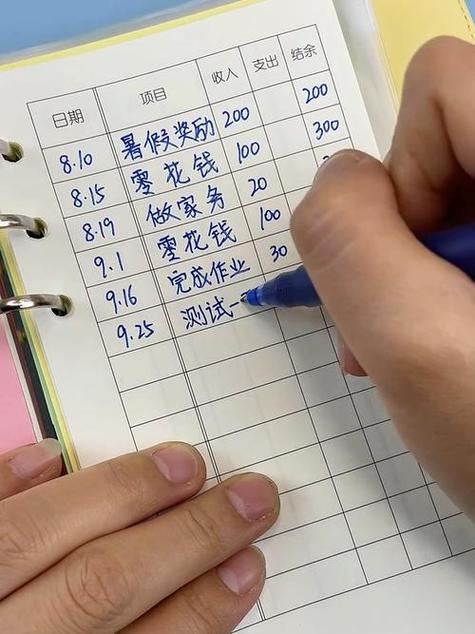 日期 项目 收入 支出 结余
8.10 暑假奖励 200 200
8.15 零花钱 100 300
8.19 做家务 20
9.1 零花钱 100
9.16 完成作业 30
9.25 测试一